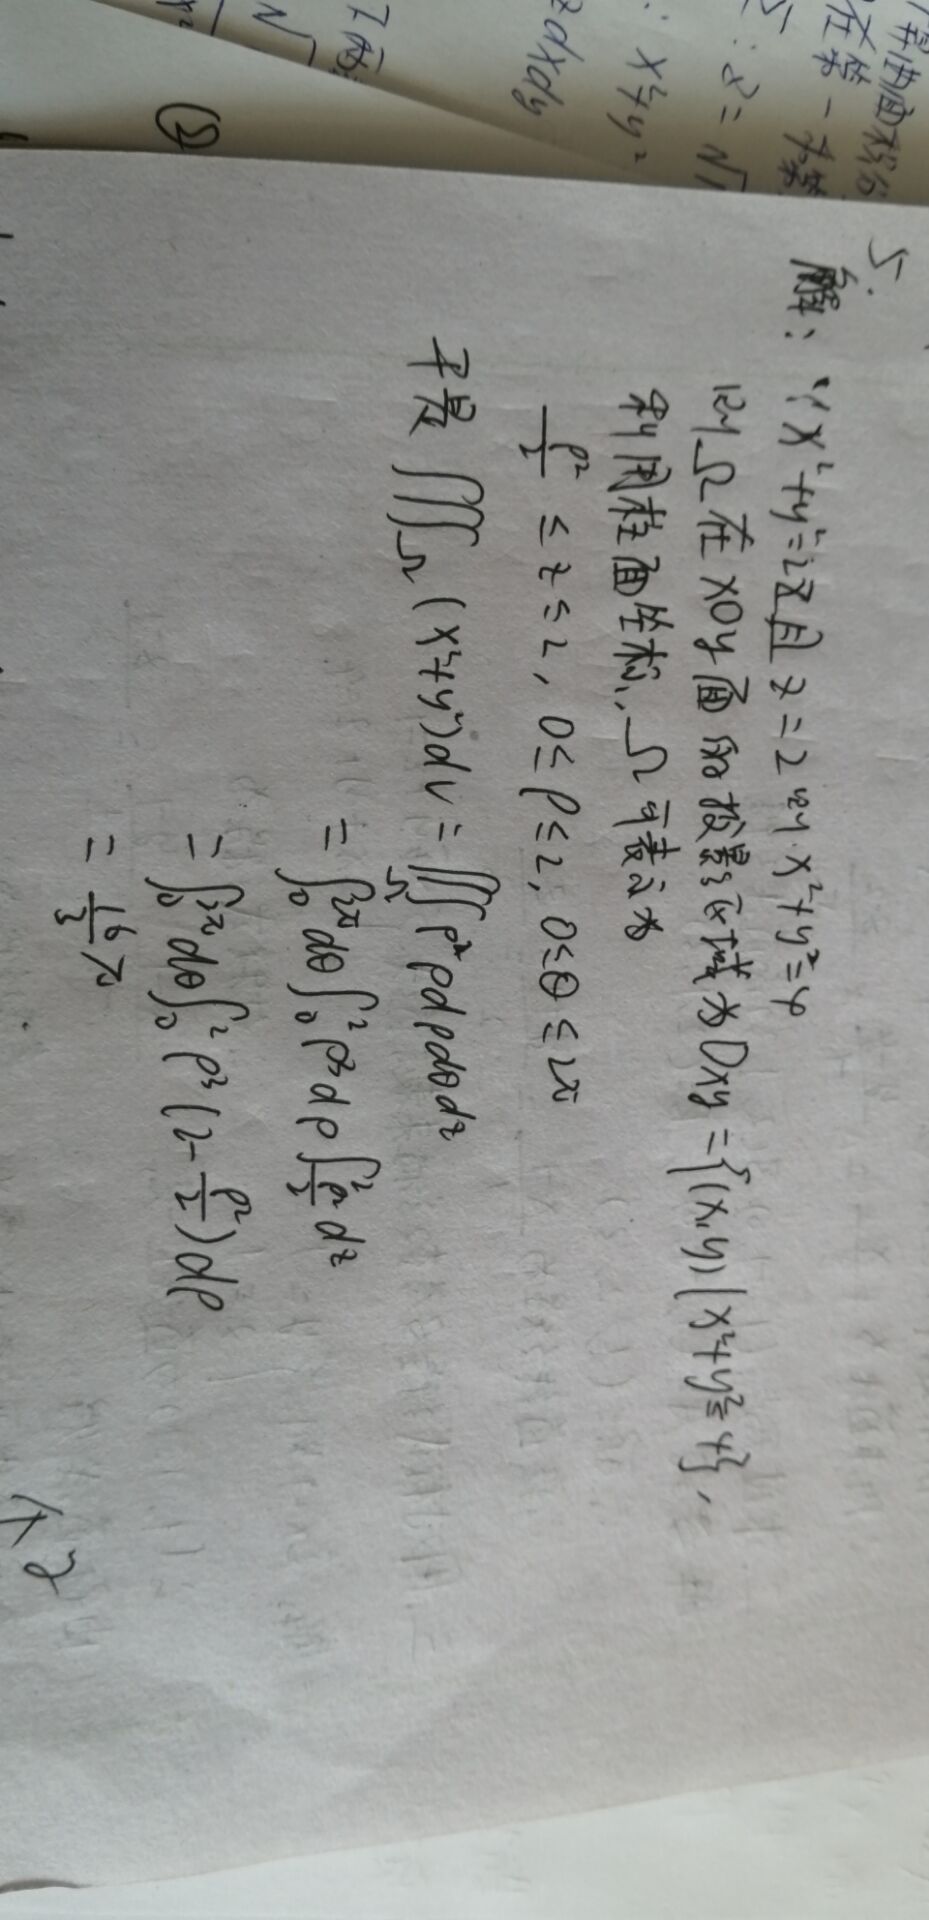 算曲面积分
在第一卦
z = √1
x²+y²
zdxdy
5.
解: ∵ x²+y²=2z且 z=2 时 x²+y²=4
因此Ω在xOy面的投影区域为Dxy={(x,y)|x²+y²≤4},
利用柱面坐标,Ω可表示为
ρ²/2 ≤ z ≤ 2, 0≤ρ≤2, 0≤θ≤2π
于是 ∭Ω (x²+y²)dv = ∭Ω ρ²ρdρdθdz
= ∫₀^2π dθ ∫₀² ρ³dρ ∫_{ρ²/2}^2 dz
= ∫₀^2π dθ ∫₀² ρ³(2-ρ²/2)dρ
= 16/3 π